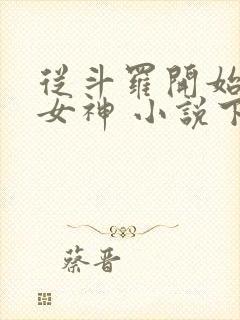 從斗羅開始
女神 小說下
蔡晋